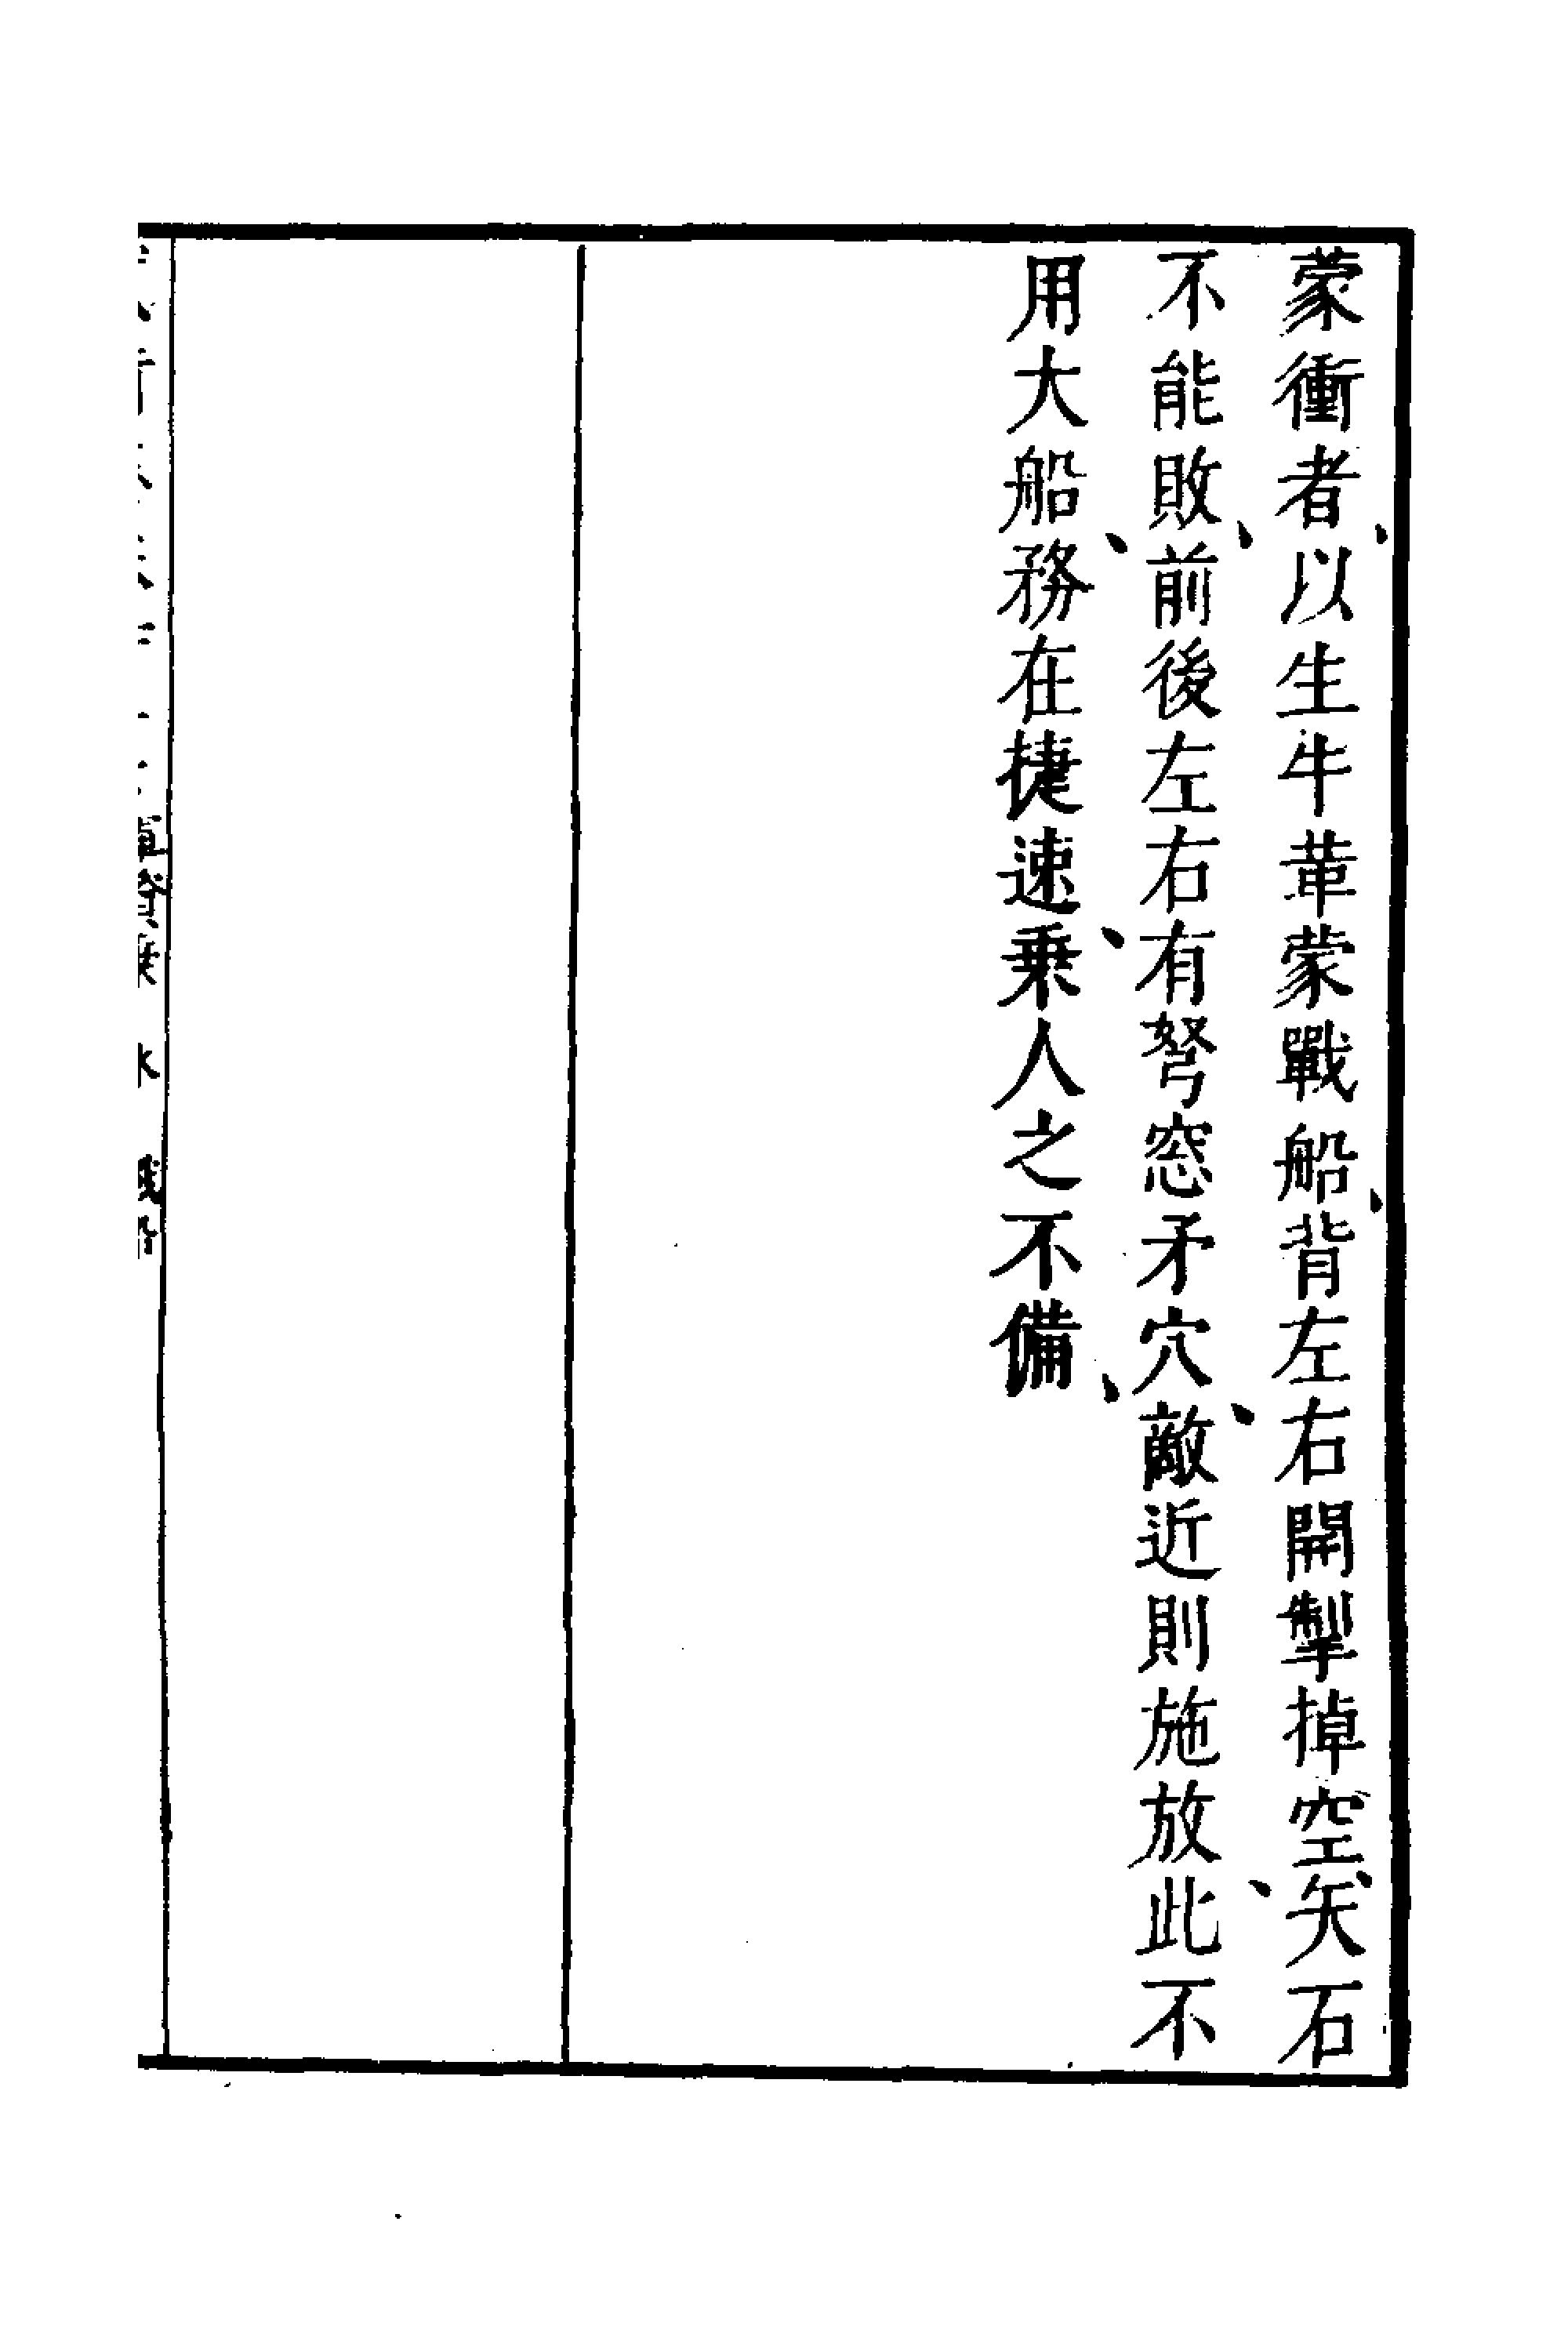 蒙衝者、以生牛革蒙戰船、背左右開掣掉空、矢石
不能敗、前後左右有弩窓矛穴、敵近則施放、此不
用大船、務在捷速、乗人之不備、